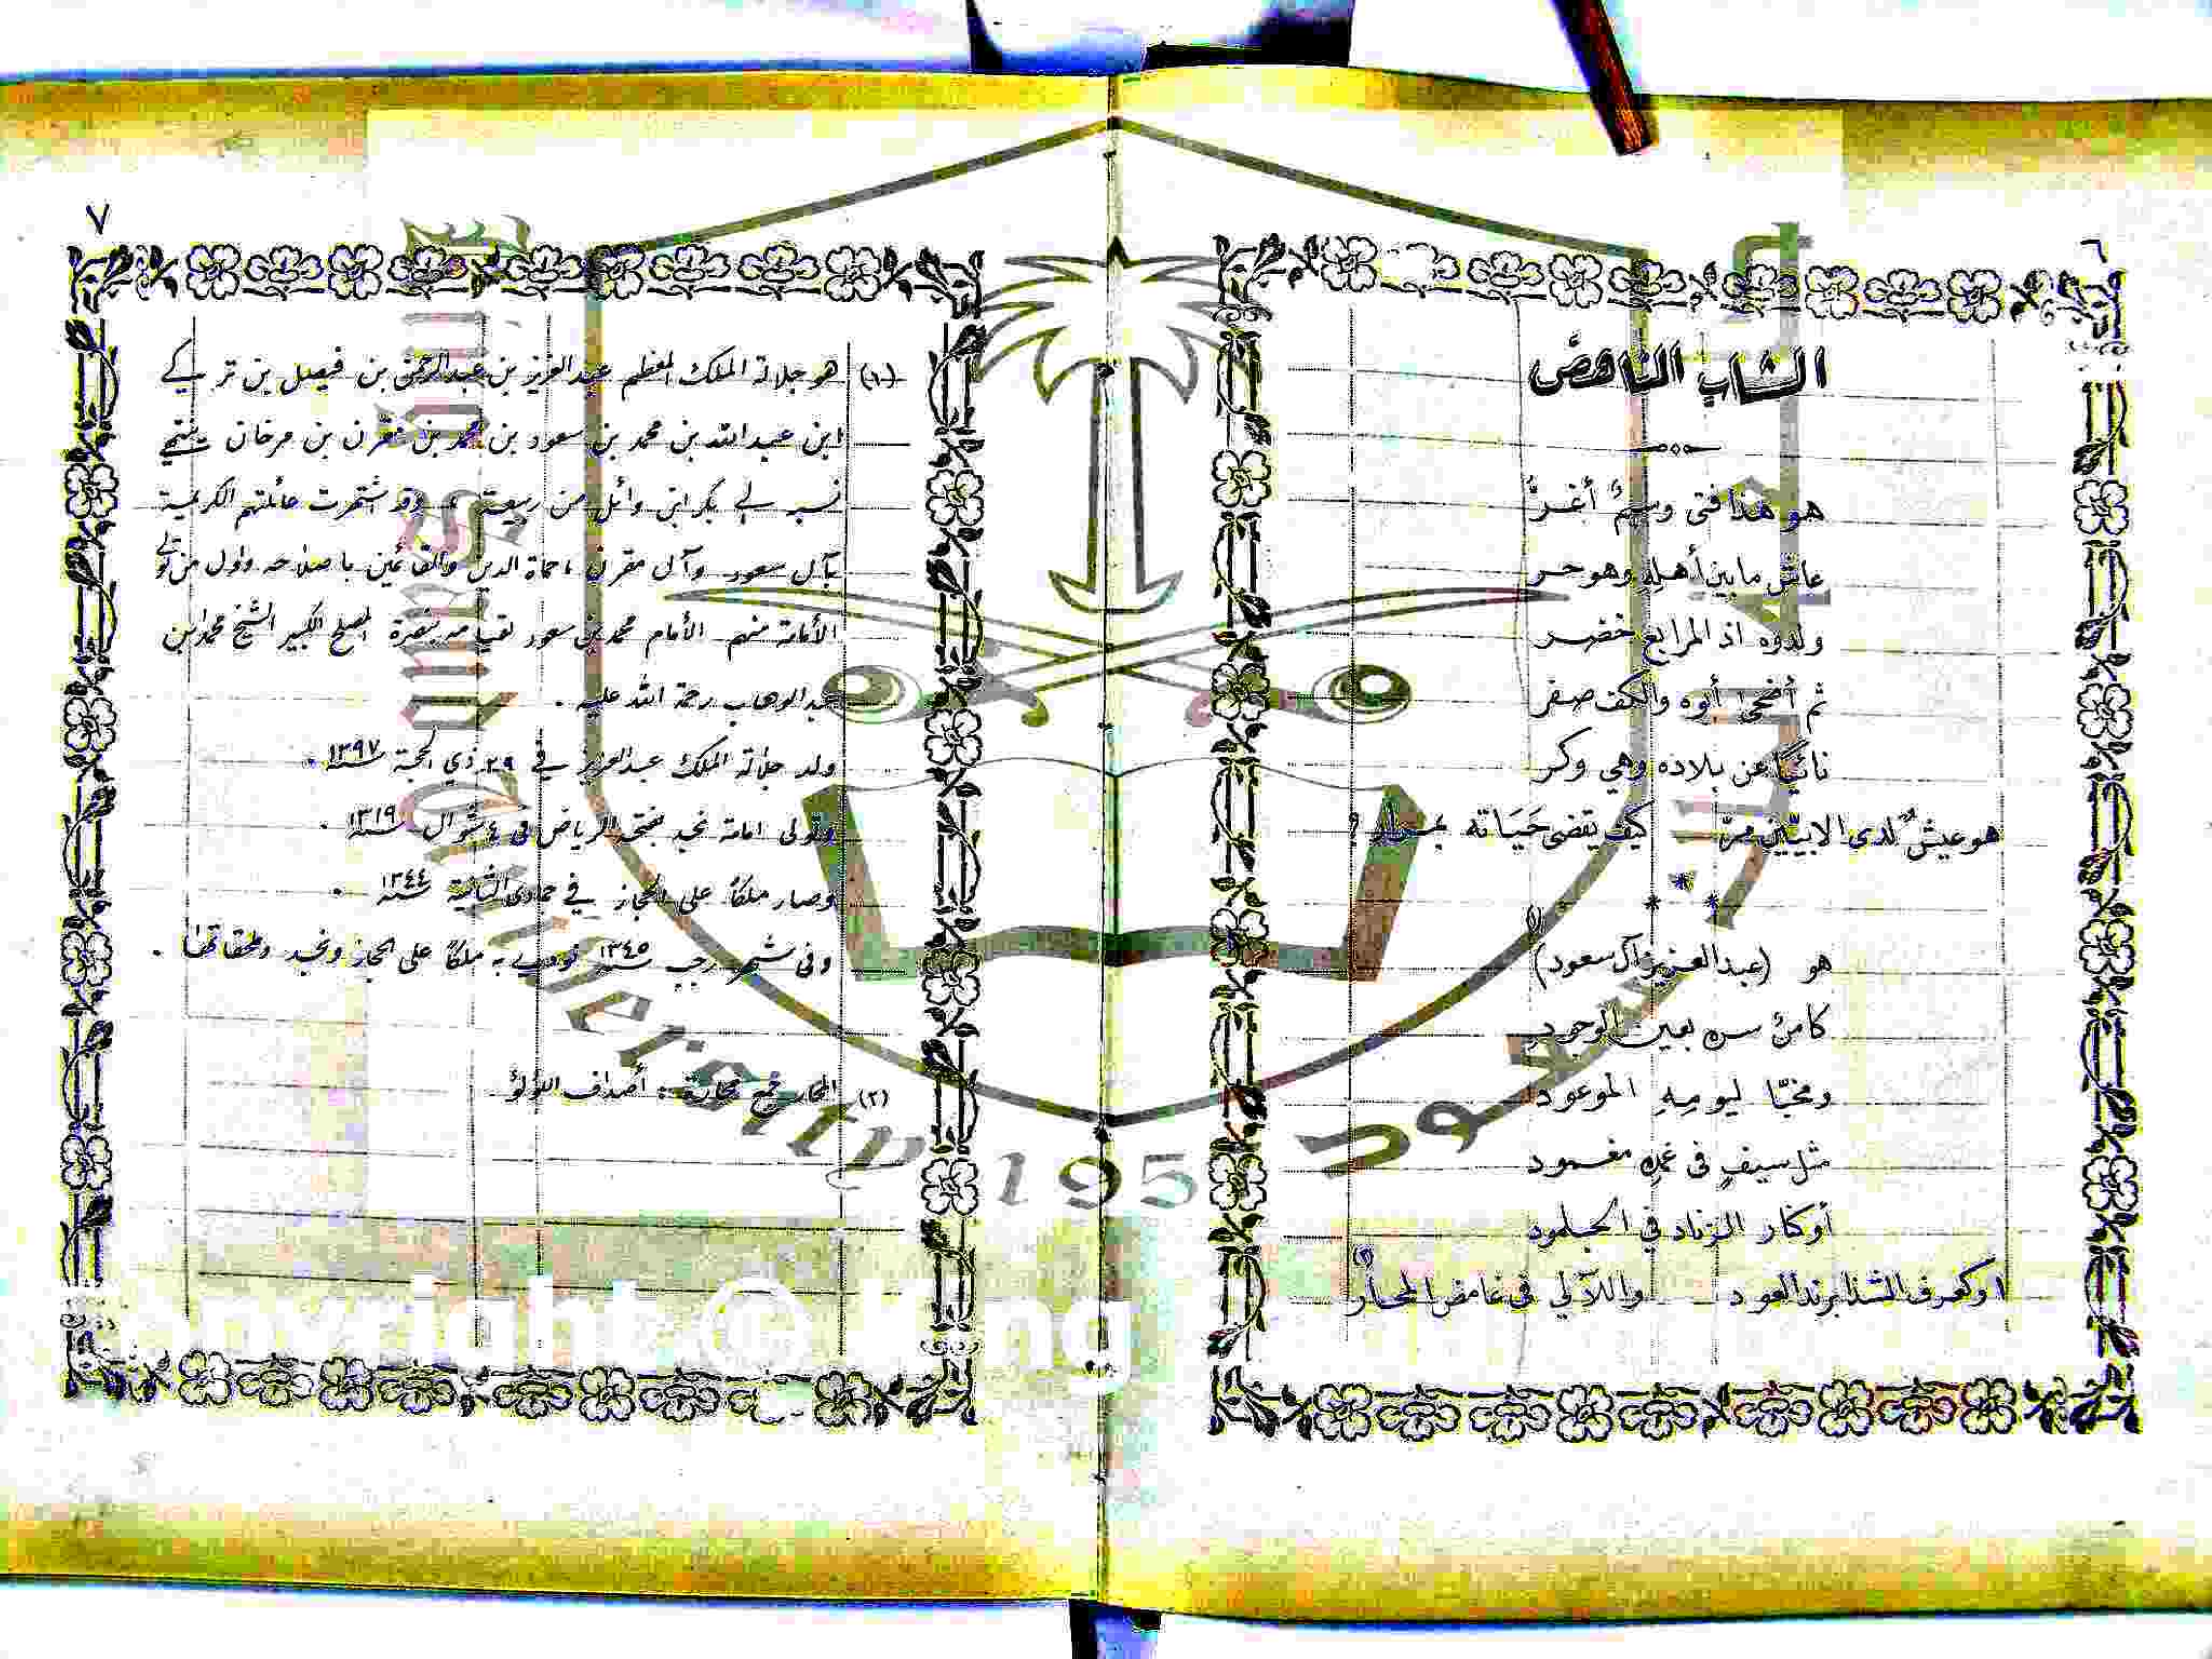 ٦
الشاب الناهض
هو هذا فتى وسيمٌ أغرُّ
عاش ما بين أهلِهِ وهو حر
ولدوه اذ المرابع خضر
ثم أضحى أبوه والكف صفر
نائيًا عن بلاده وهي وكر
هو عيشٌ لدى الابيّين مرّ كيف يقضى حَيَاته ؟
* * *
هو (عبدالعزيز آل سعود) (١)
كامنٌ سره بعين الوجود
ومخبّا ليومِهِ الموعود
مثل سيفٍ في غمدِه مغمود
أو كنار الزناد في الجلمود
او كعرف الشذا برند العود واللآلي في غامض المحار (٢)
٧
(١) هو جلالة الملك المعظم عبدالعزيز بن عبدالرحمن بن فيصل بن تركي
ابن عبدالله بن محمد بن سعود بن محمد بن مقرن بن مرخان ينتهي
نسبه لي بكر ابن وائل من ربيعة وقد اشتهرت عائلتهم الكريمة
بآل سعود وآل مقرن ، حماة الدين والقائمين باصلاحه وأول من تولى
الأمامة منهم الأمام محمد بن سعود لقيامه بنصرة المصلح الكبير الشيخ محمد ابن
عبدالوهاب رحمة الله عليه .
ولد جلالة الملك عبدالعزيز في ٢٩ ذي الحجة سنة ١٢٩٧ .
وتولى امامة نجد بفتحه الرياض في ٤ شوال سنة ١٣١٩ .
وصار ملكاً على الحجاز في جمادى الثانية سنة ١٣٤٤ .
وفى شهر رجب سنة ١٣٤٥ نودي به ملكاً على الحجاز ونجد وملحقاتها .
(٢) المحار جمع محارة : أصداف اللؤلؤ